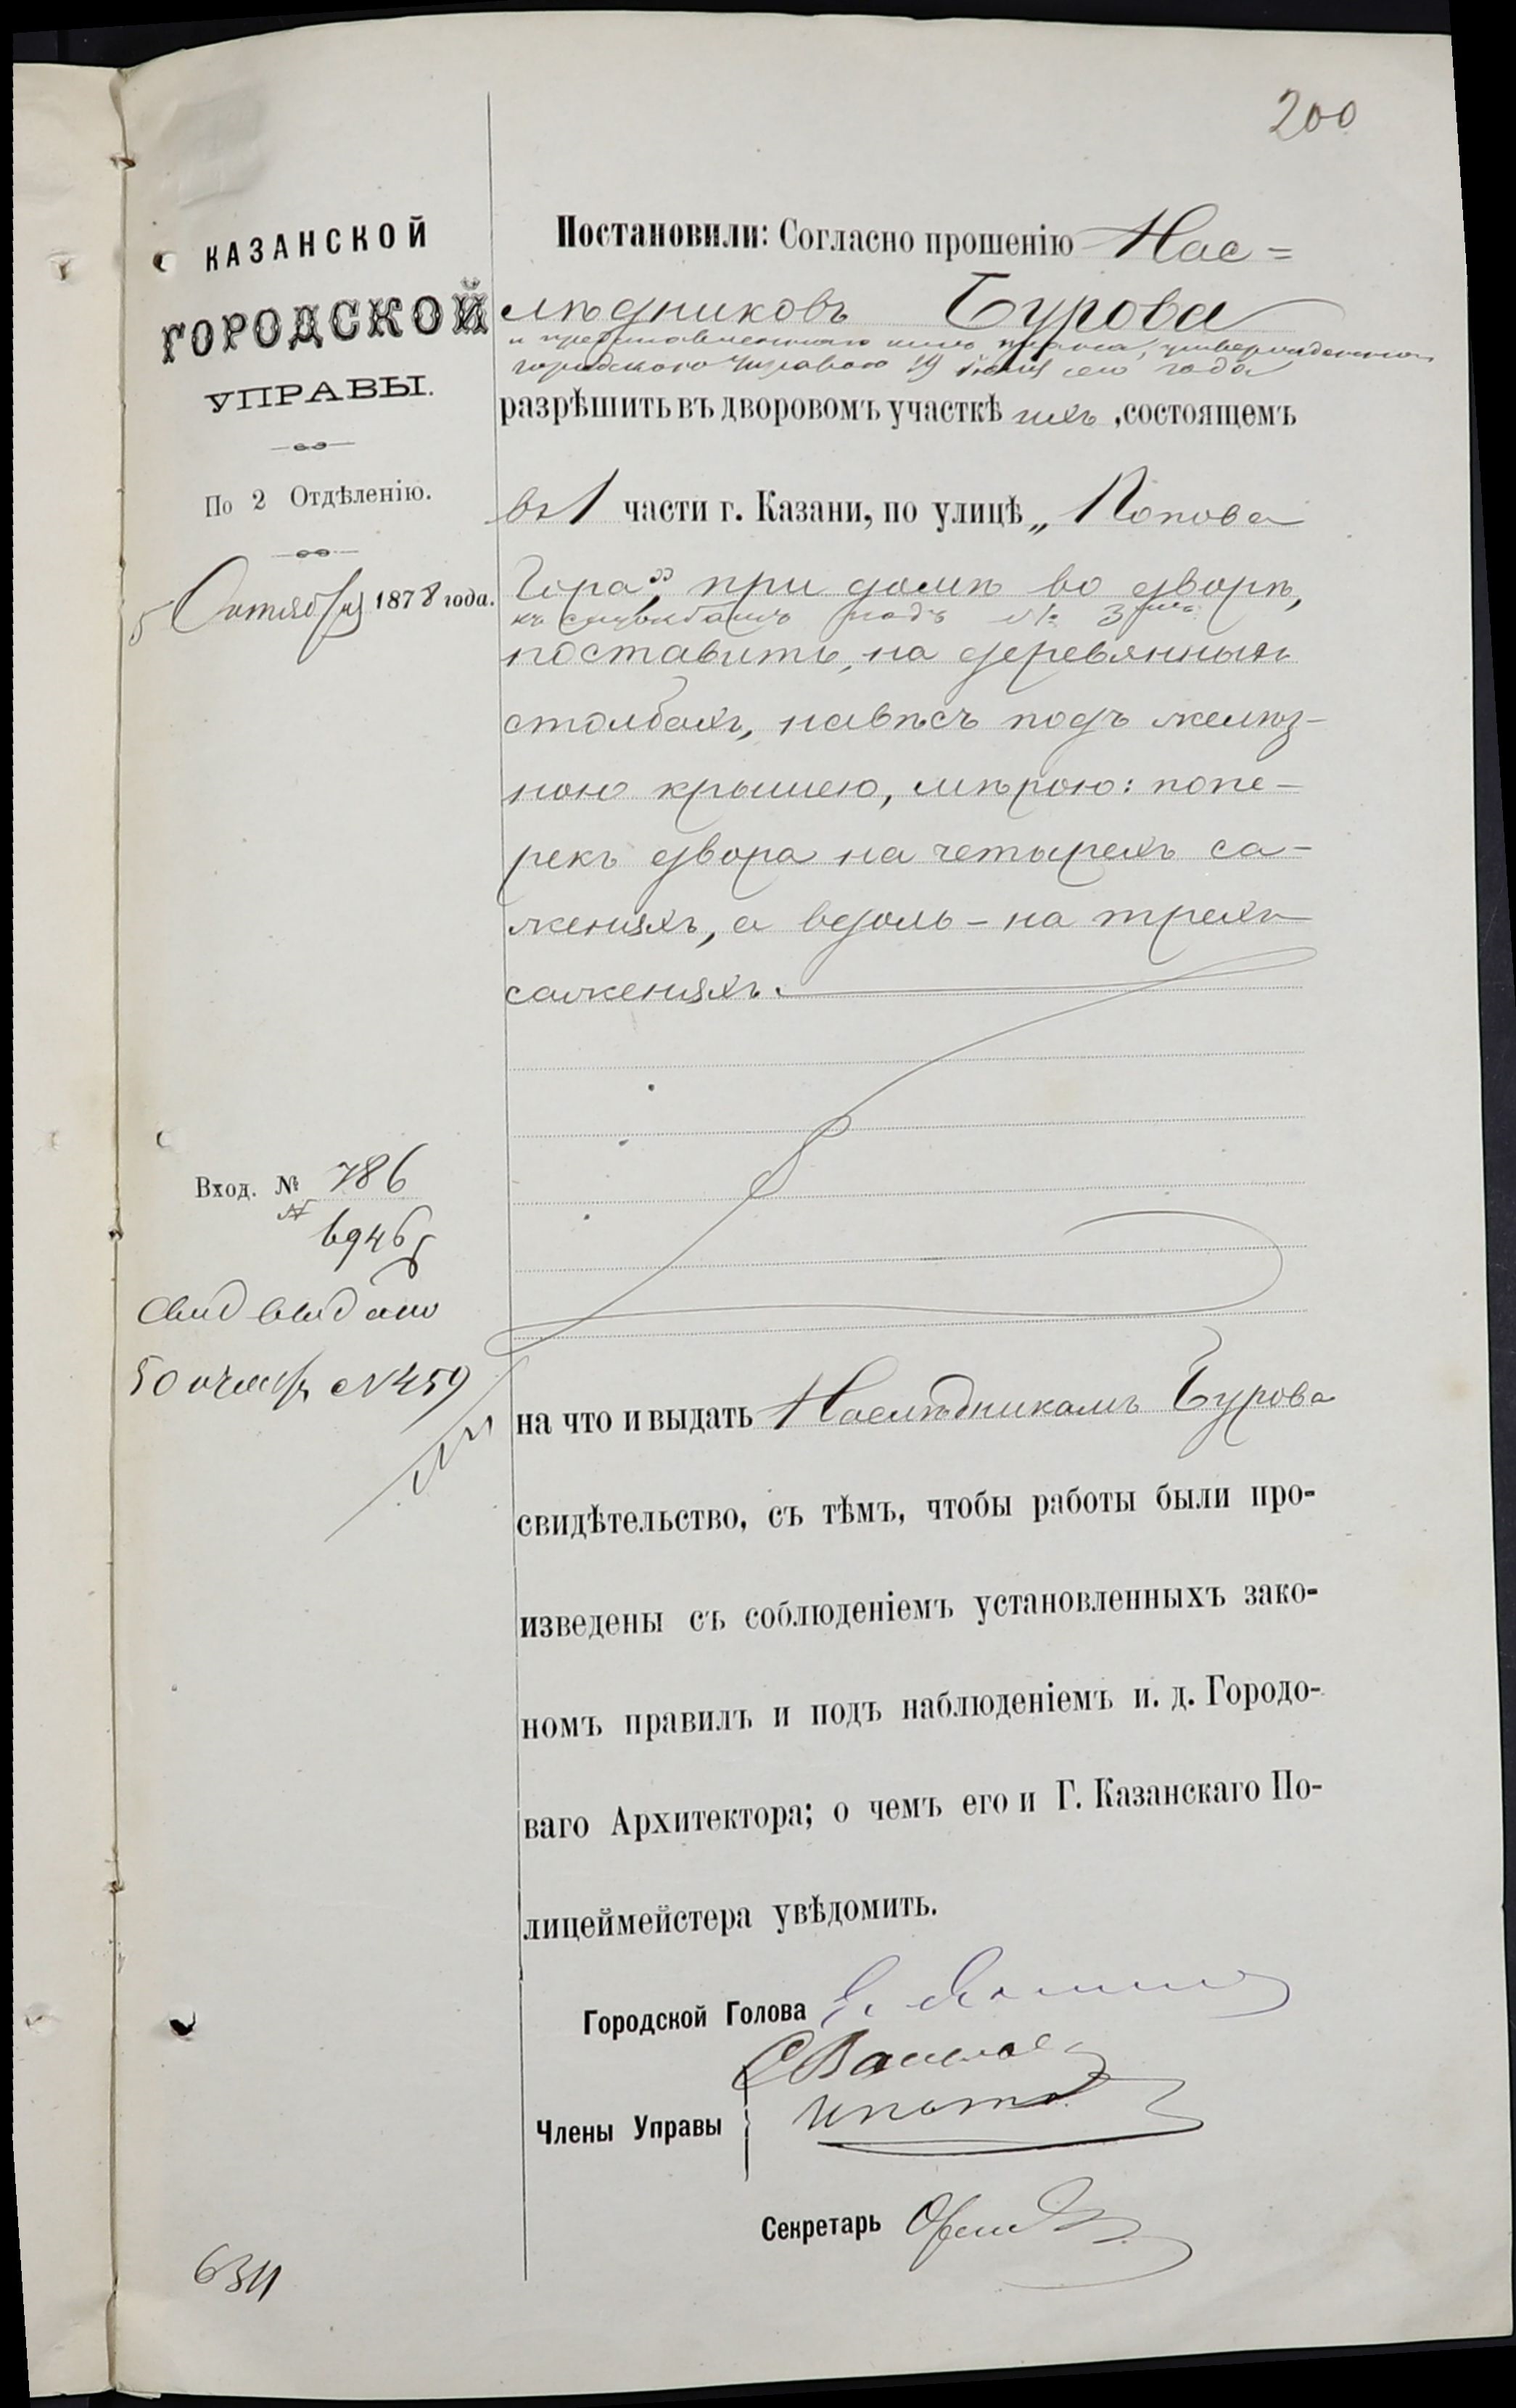 200
КАЗАНСКОЙ
ГОРОДСКОЙ
УПРАВЫ.
По 2 Отдѣленію.
5 Октября 1878 года.
Вход. № 786
№ 6946
Свид выдано
5 Октяб № 459
634
Постановили: Согласно прошенію Нас=
лѣдниковъ Бурова
и представленнаго ими плана, утвержденнаго
городскою Управою 19 Іюня сего года
разрѣшить въ дворовомъ участкѣ ихъ, состоящемъ
въ 1 части г. Казани, по улицѣ „Попова
Гора", при домѣ во дворѣ,
къ службамъ подъ № 3
поставить, на деревянныхъ
столбахъ, навѣсъ подъ желѣз-
ною крышею, мѣрою: попе-
рекъ двора на четырехъ са-
женяхъ, а вдоль - на трехъ
саженяхъ.
на что и выдать Наслѣдникамъ Бурова
свидѣтельство, съ тѣмъ, чтобы работы были про-
изведены съ соблюденіемъ установленныхъ зако-
номъ правилъ и подъ наблюденіемъ и. д. Городо-
ваго Архитектора; о чемъ его и Г. Казанскаго По-
лицеймейстера увѣдомить.
Городской Голова
Члены Управы
Секретарь